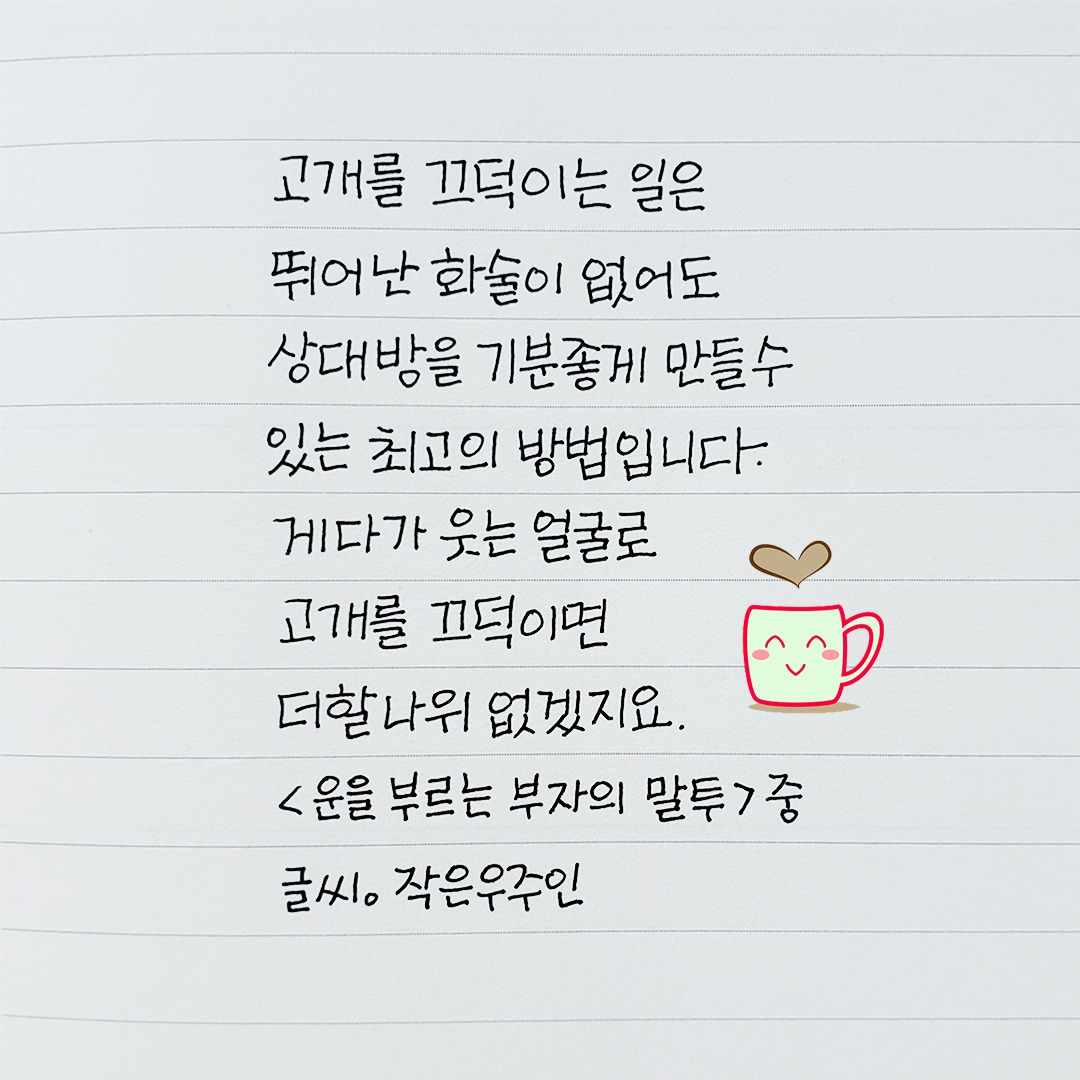 고개를 끄덕이는 일은
뛰어난 화술이 없어도
상대방을 기분좋게 만들수
있는 최고의 방법입니다.
게다가 웃는 얼굴로
고개를 끄덕이면
더할나위 없겠지요.
<운을 부르는 부자의 말투>중
글씨。작은우주인